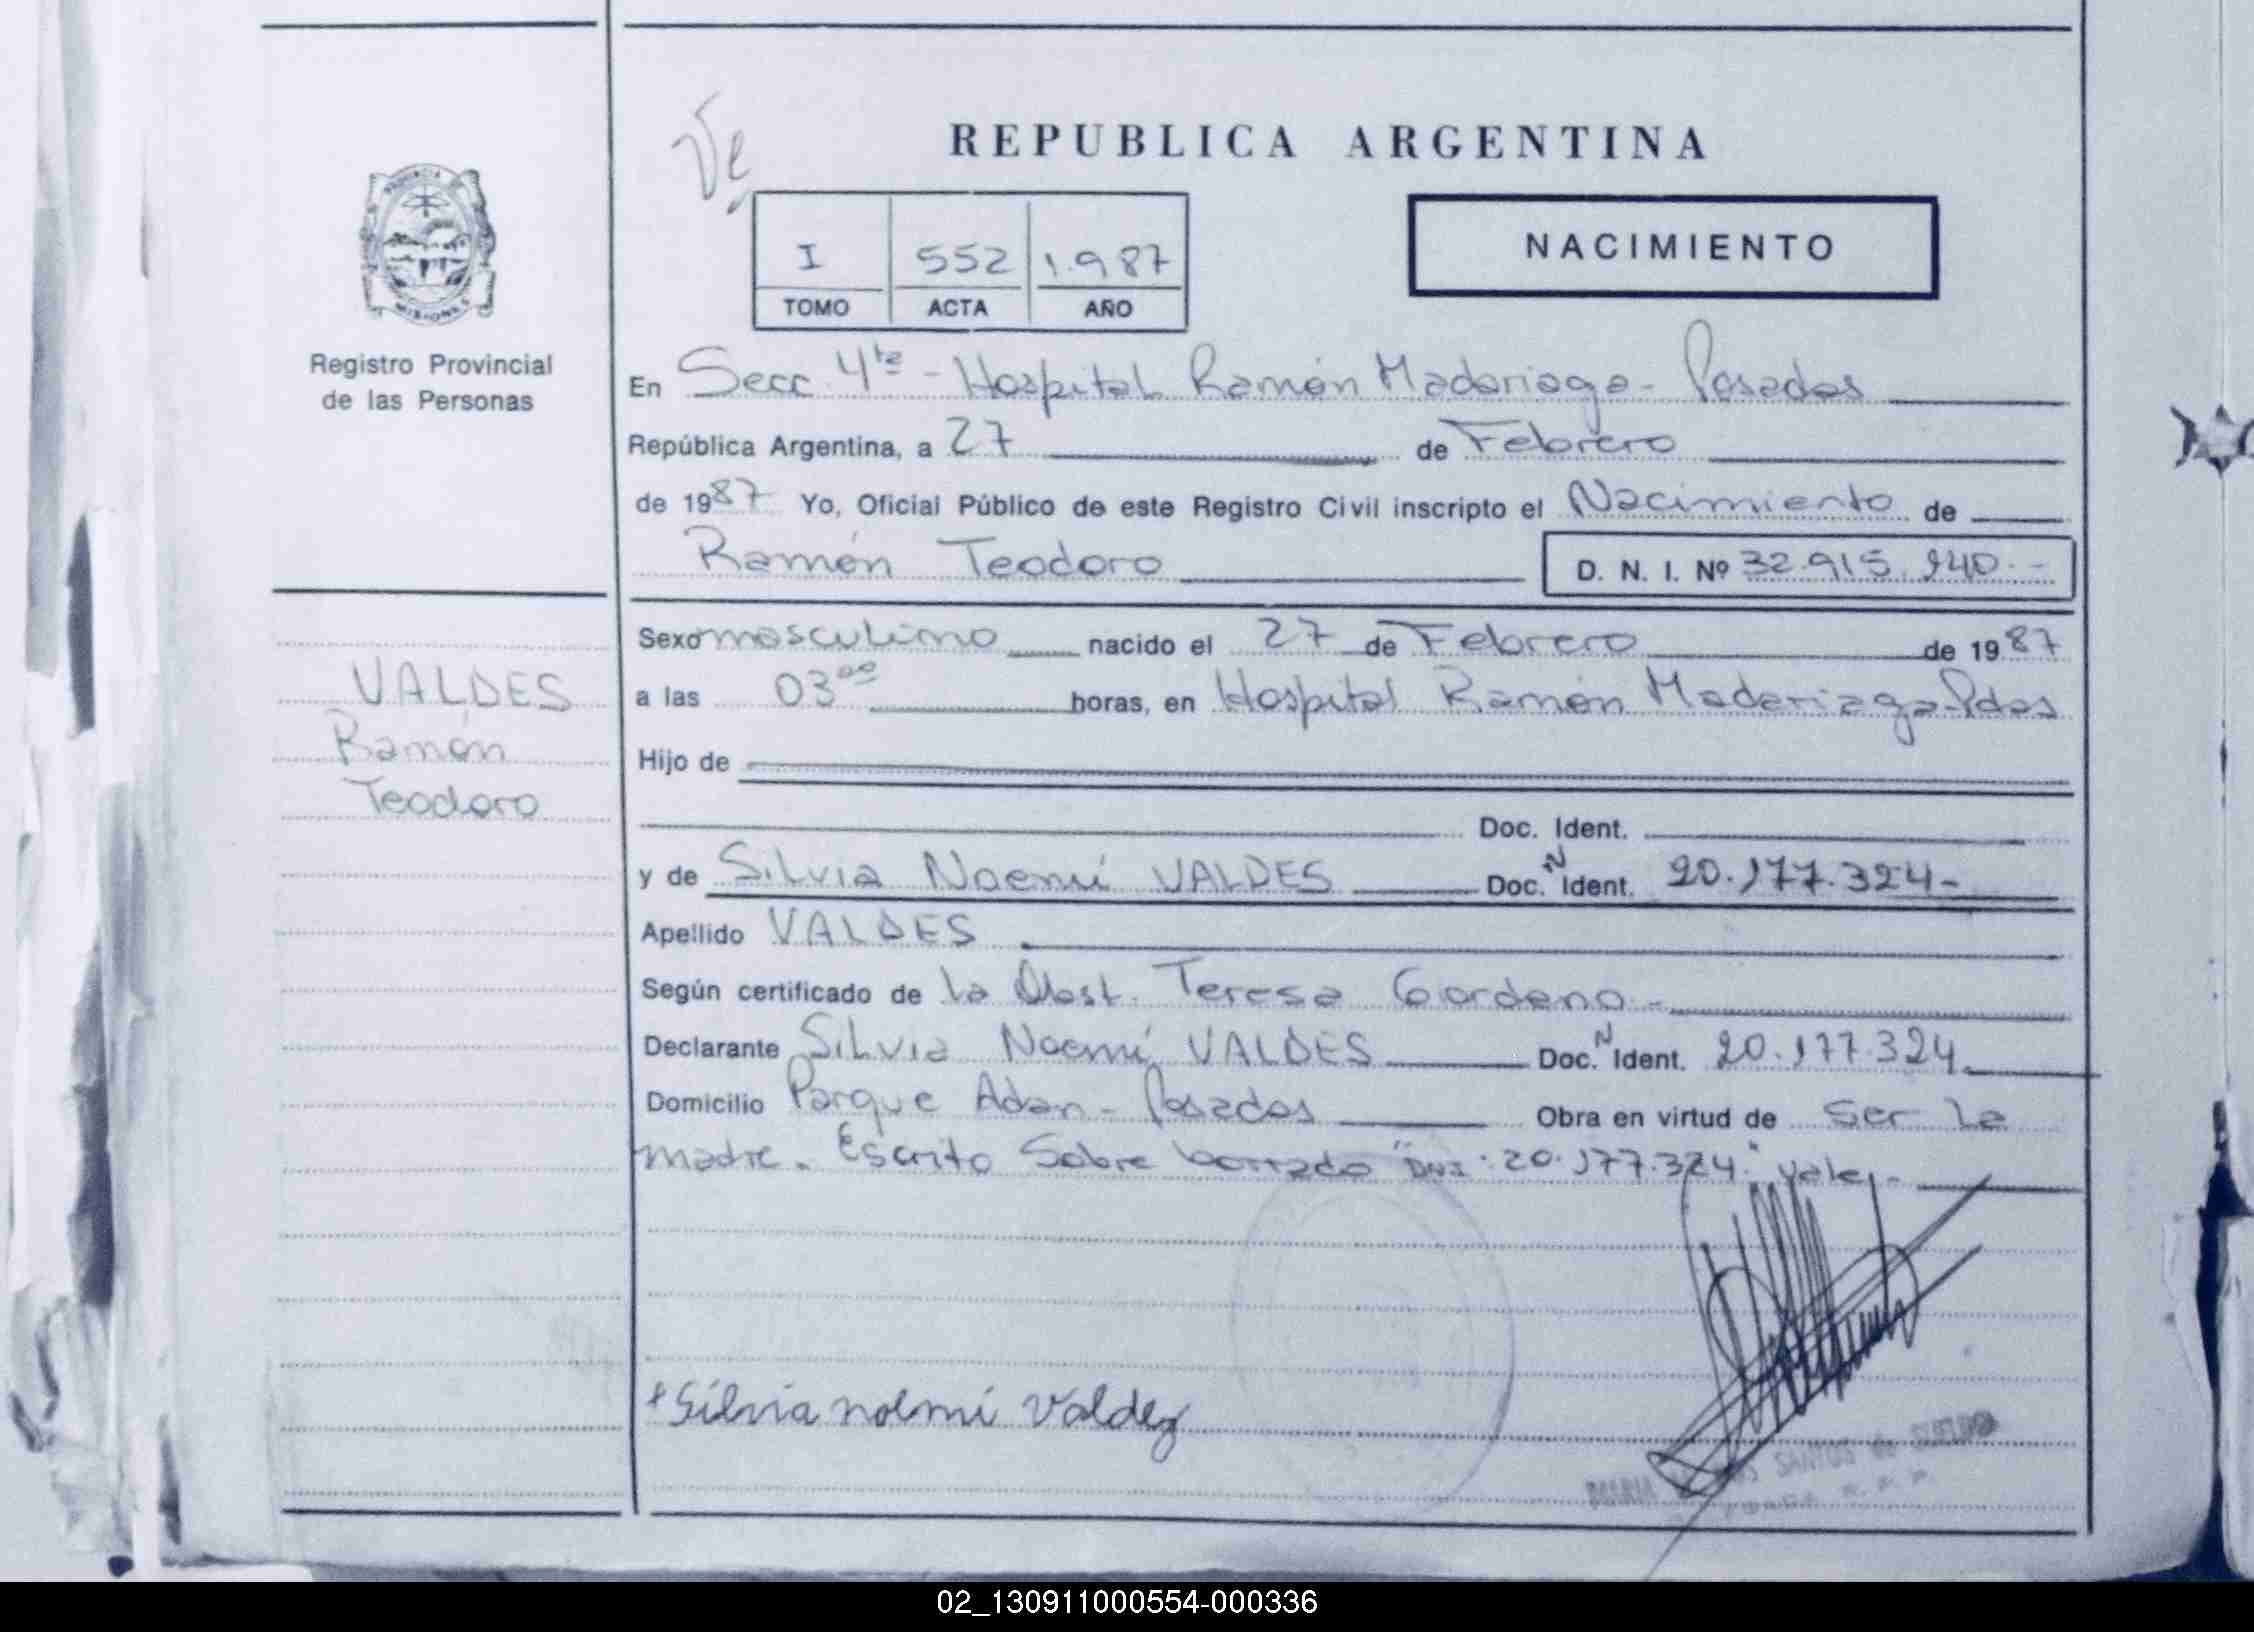 Ve
REPUBLICA ARGENTINA
I 552 1.987
TOMO ACTA AÑO
NACIMIENTO
PROVINCIA DE
MISIONES
Registro Provincial
de las Personas
En Secc. 4ta - Hospital Ramón Madariaga - Posadas
República Argentina, a 27 de Febrero
de 1987 Yo, Oficial Público de este Registro Civil inscripto el Nacimiento de
Ramón Teodoro D. N. I. Nº 32.915.940.-
VALDES
Ramón
Teodoro
Sexo masculino nacido el 27 de Febrero de 1987
a las 03 oo horas, en Hospital Ramón Madariaga-Pdas
Hijo de
Doc. Ident.
y de Silvia Noemí VALDES Doc. N Ident. 20.177.324-
Apellido VALDES
Según certificado de la Obst. Teresa Giordano -
Declarante Silvia Noemí VALDES Doc. N Ident. 20.177.324
Domicilio Parque Adan - Posadas Obra en virtud de ser la
madre. Escrito sobre borrado "DNI: 20.177.324" vale.-
+Silvia noemi Valdez
MARIA SANTOS de
02_130911000554-000336